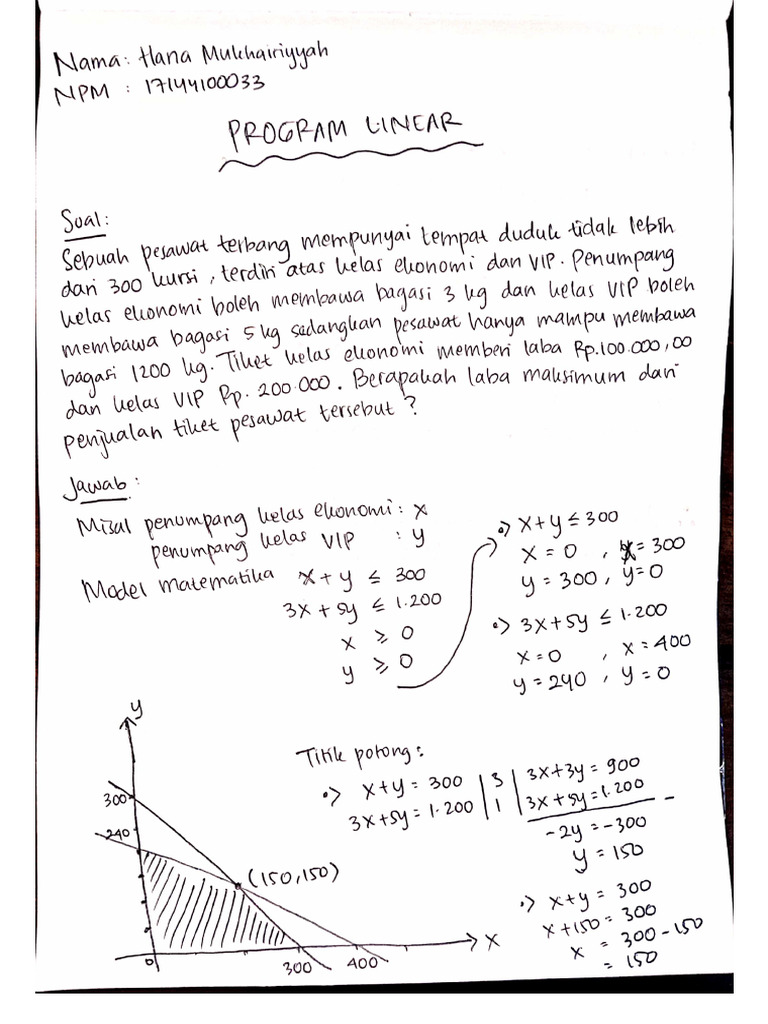 Nama: Hana Mukhairiyyah
NPM : 17144100033
PROGRAM LINEAR
Soal:
Sebuah pesawat terbang mempunyai tempat duduk tidak lebih
dari 300 kursi, terdiri atas kelas ekonomi dan VIP. Penumpang
kelas ekonomi boleh membawa bagasi 3 kg dan kelas VIP boleh
membawa bagasi 5 kg sedangkan pesawat hanya mampu membawa
bagasi 1200 kg. Tiket kelas ekonomi memberi laba Rp.100.000,00
dan kelas VIP Rp. 200.000. Berapakah laba maksimum dari
penjualan tiket pesawat tersebut?
Jawab:
Misal penumpang kelas ekonomi : x
penumpang kelas VIP : y
Model matematika x + y ≤ 300
3x + 5y ≤ 1.200
x ≥ 0
y ≥ 0
•) x + y ≤ 300
x = 0 , x = 300
y = 300, y = 0
•) 3x + 5y ≤ 1.200
x = 0 , x = 400
y = 240 , y = 0
Titik potong:
•) x + y = 300 | 3 | 3x + 3y = 900
3x + 5y = 1.200 | 1 | 3x + 5y = 1.200 -
-2y = -300
y = 150
•) x + y = 300
x + 150 = 300
x = 300 - 150
= 150
y
300
240
(150,150)
0
300
400
x